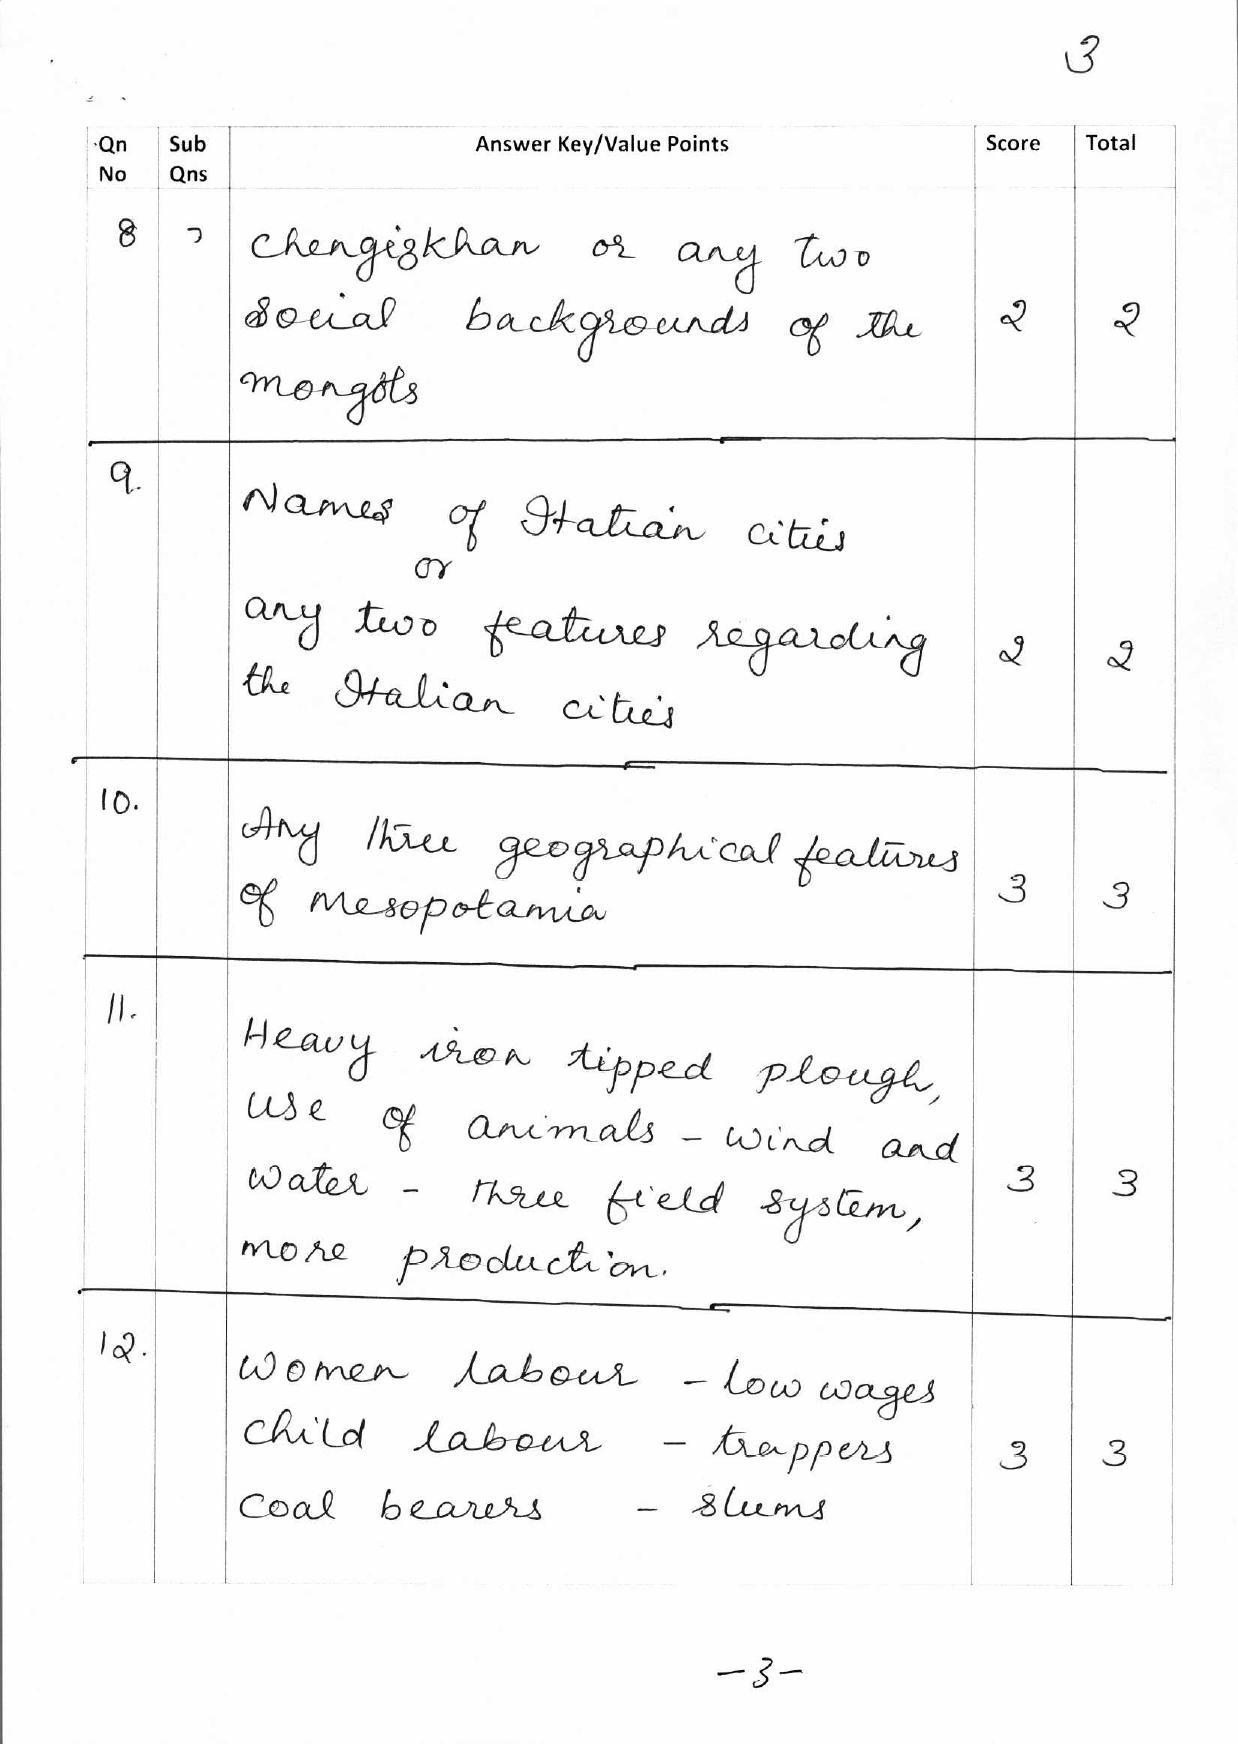 3
Qn No Sub Qns Answer Key/Value Points Score Total
8 Chengizkhan or any two
social backgrounds of the 2 2
mongols
9.
Names of Italian cities
or
any two features regarding 2 2
the Italian cities
10.
Any three geographical features
of mesopotamia 3 3
11.
Heavy iron tipped plough,
use of animals - wind and
water - three field system, 3 3
more production.
12.
Women labour - low wages
child labour - trappers 3 3
coal bearers - slums
-3-